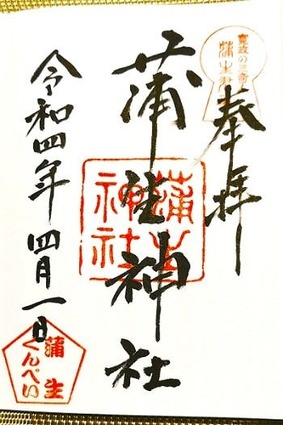 奉拝
寛政の三奇人
蒲生君平
蒲生神社
蒲生神社
令和四年四月一日
蒲生
くんぺい